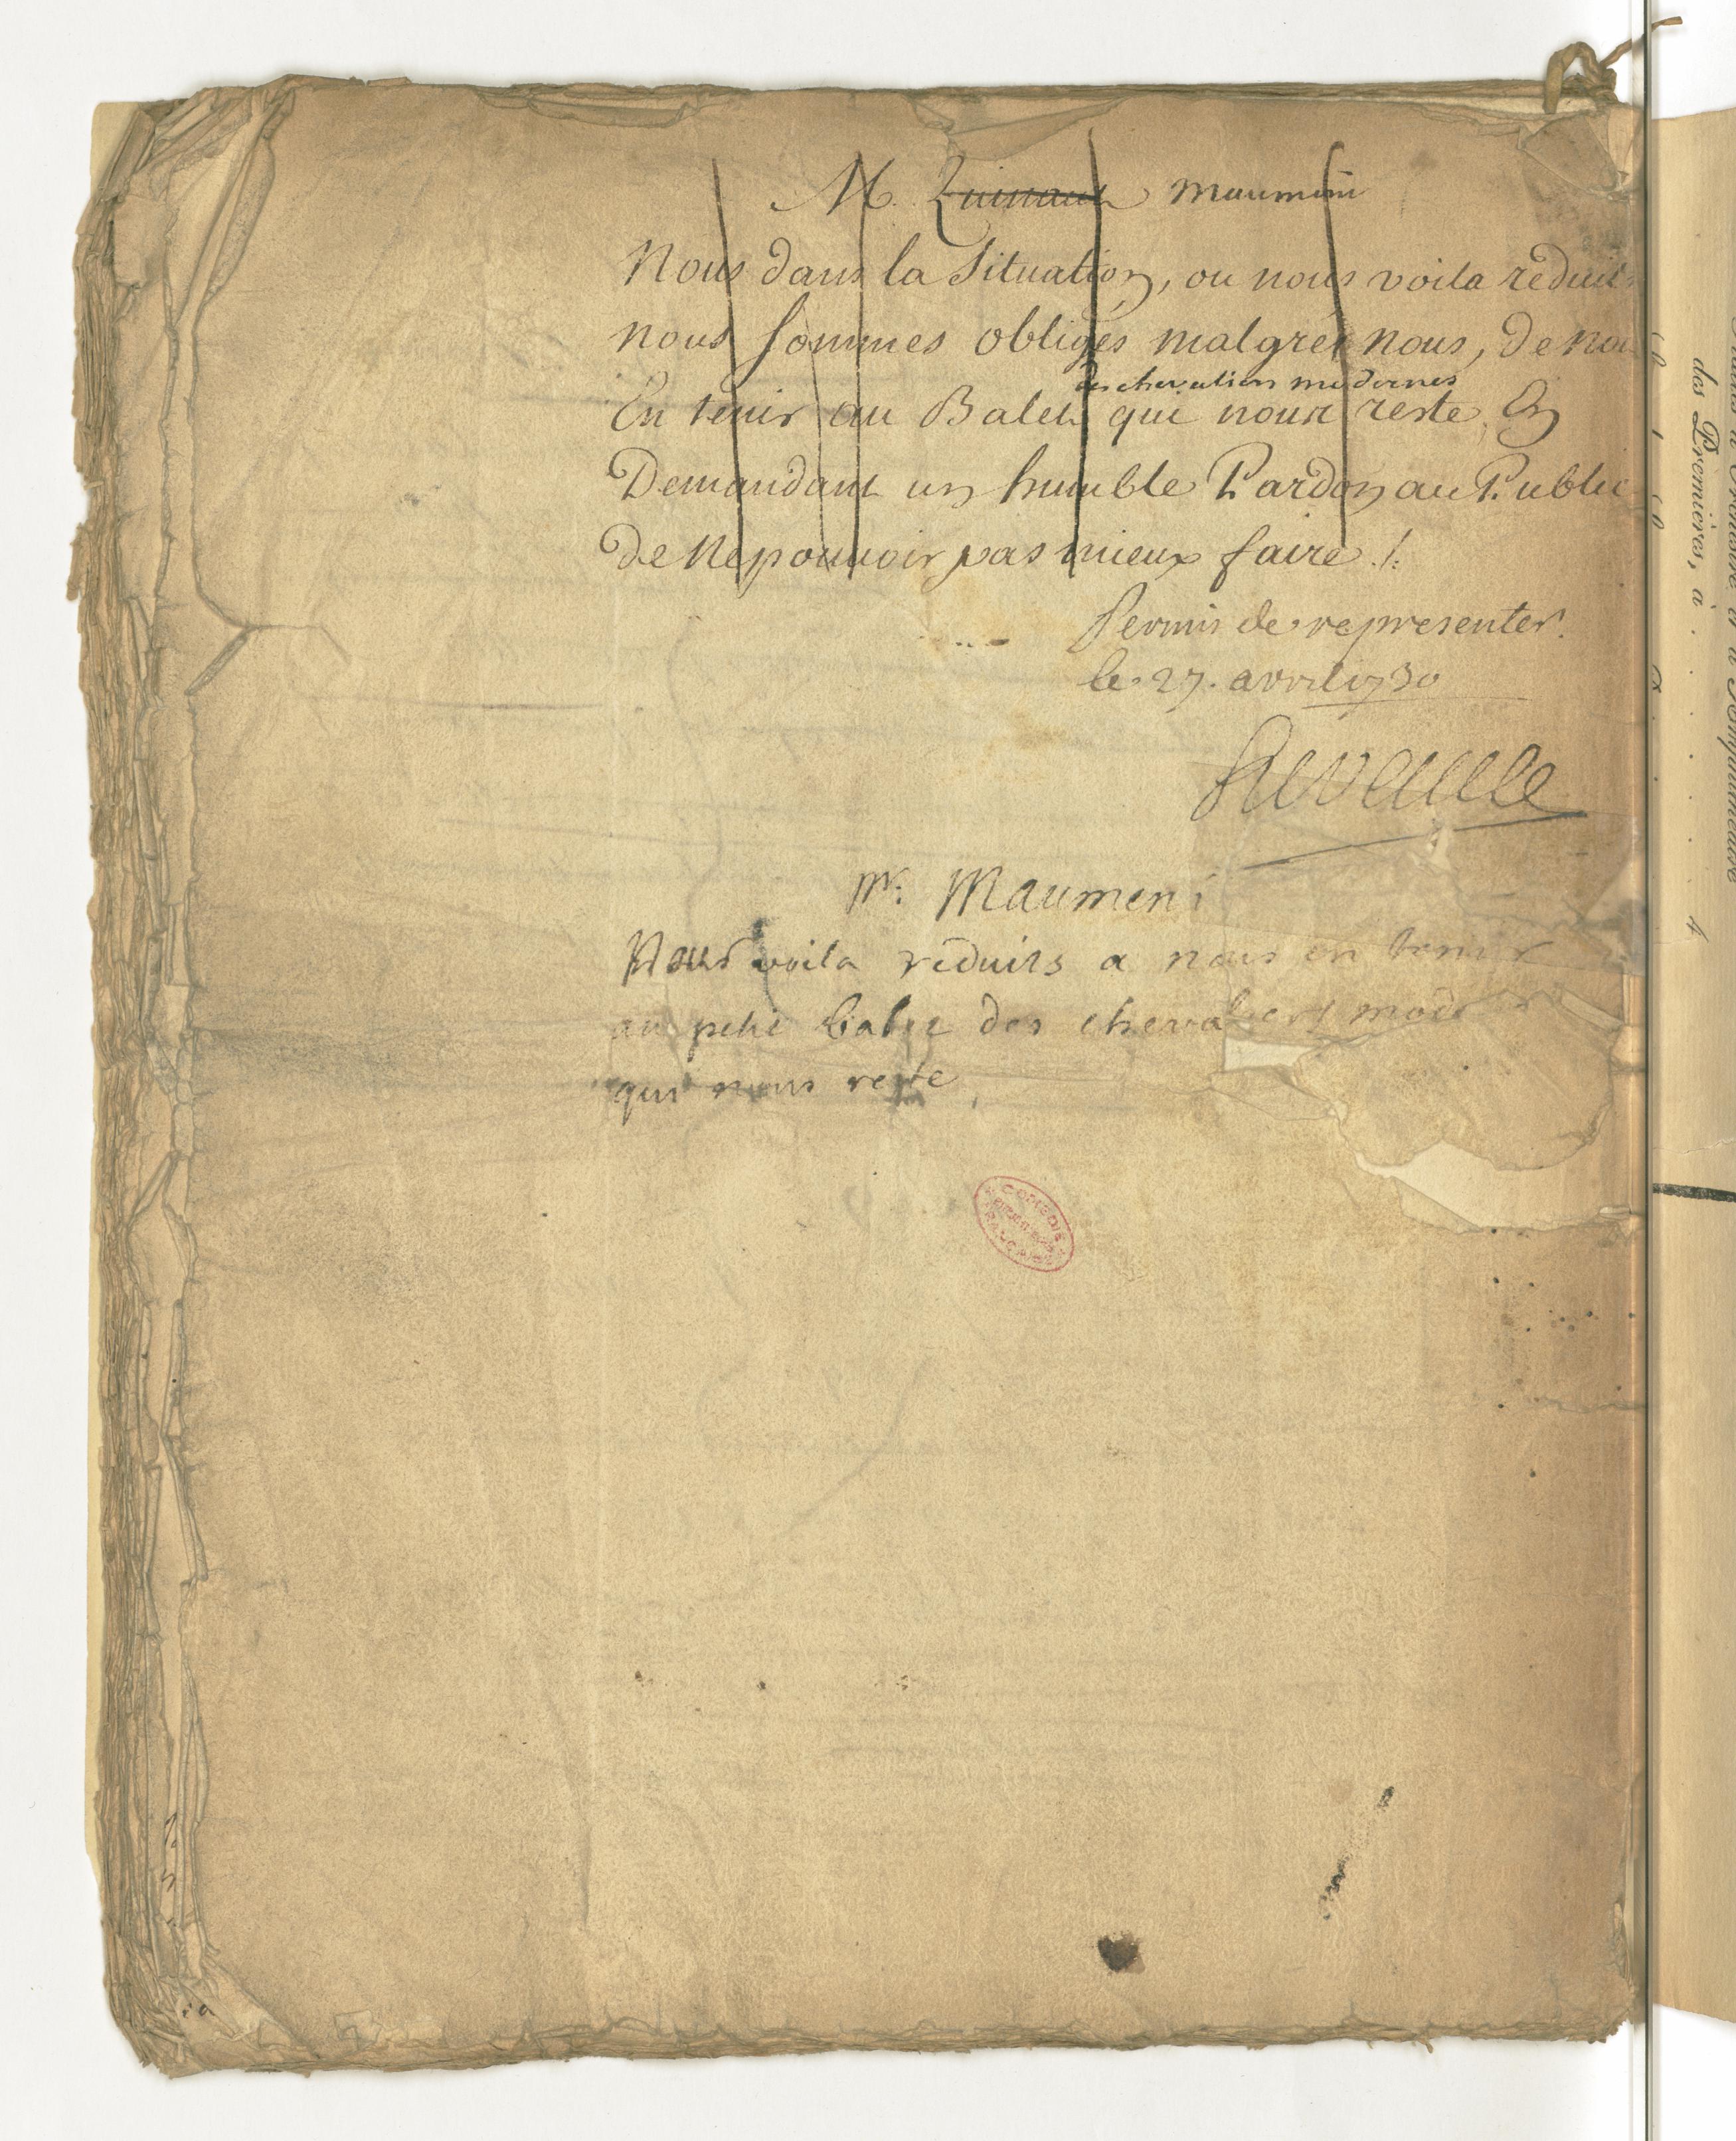 M. Quinault maumeni
Nous dans la Situation, ou nous voila reduits
nous sommes obligés malgrés nous, de nou
des chevaliers modernes
En tenir au Balet qui nous reste En
Demandant un humble Pardon au Public
de Ne pouvoir pas mieux faire !.
Permis de representer.
le 27. avril 1730
Mr. Maumeni
Nous voila reduits a nous en tenir
au petit balet des chevaliers mod
qui nous reste.
COMEDIE
FRANCAISE
des Premières, à . . . . . . 4